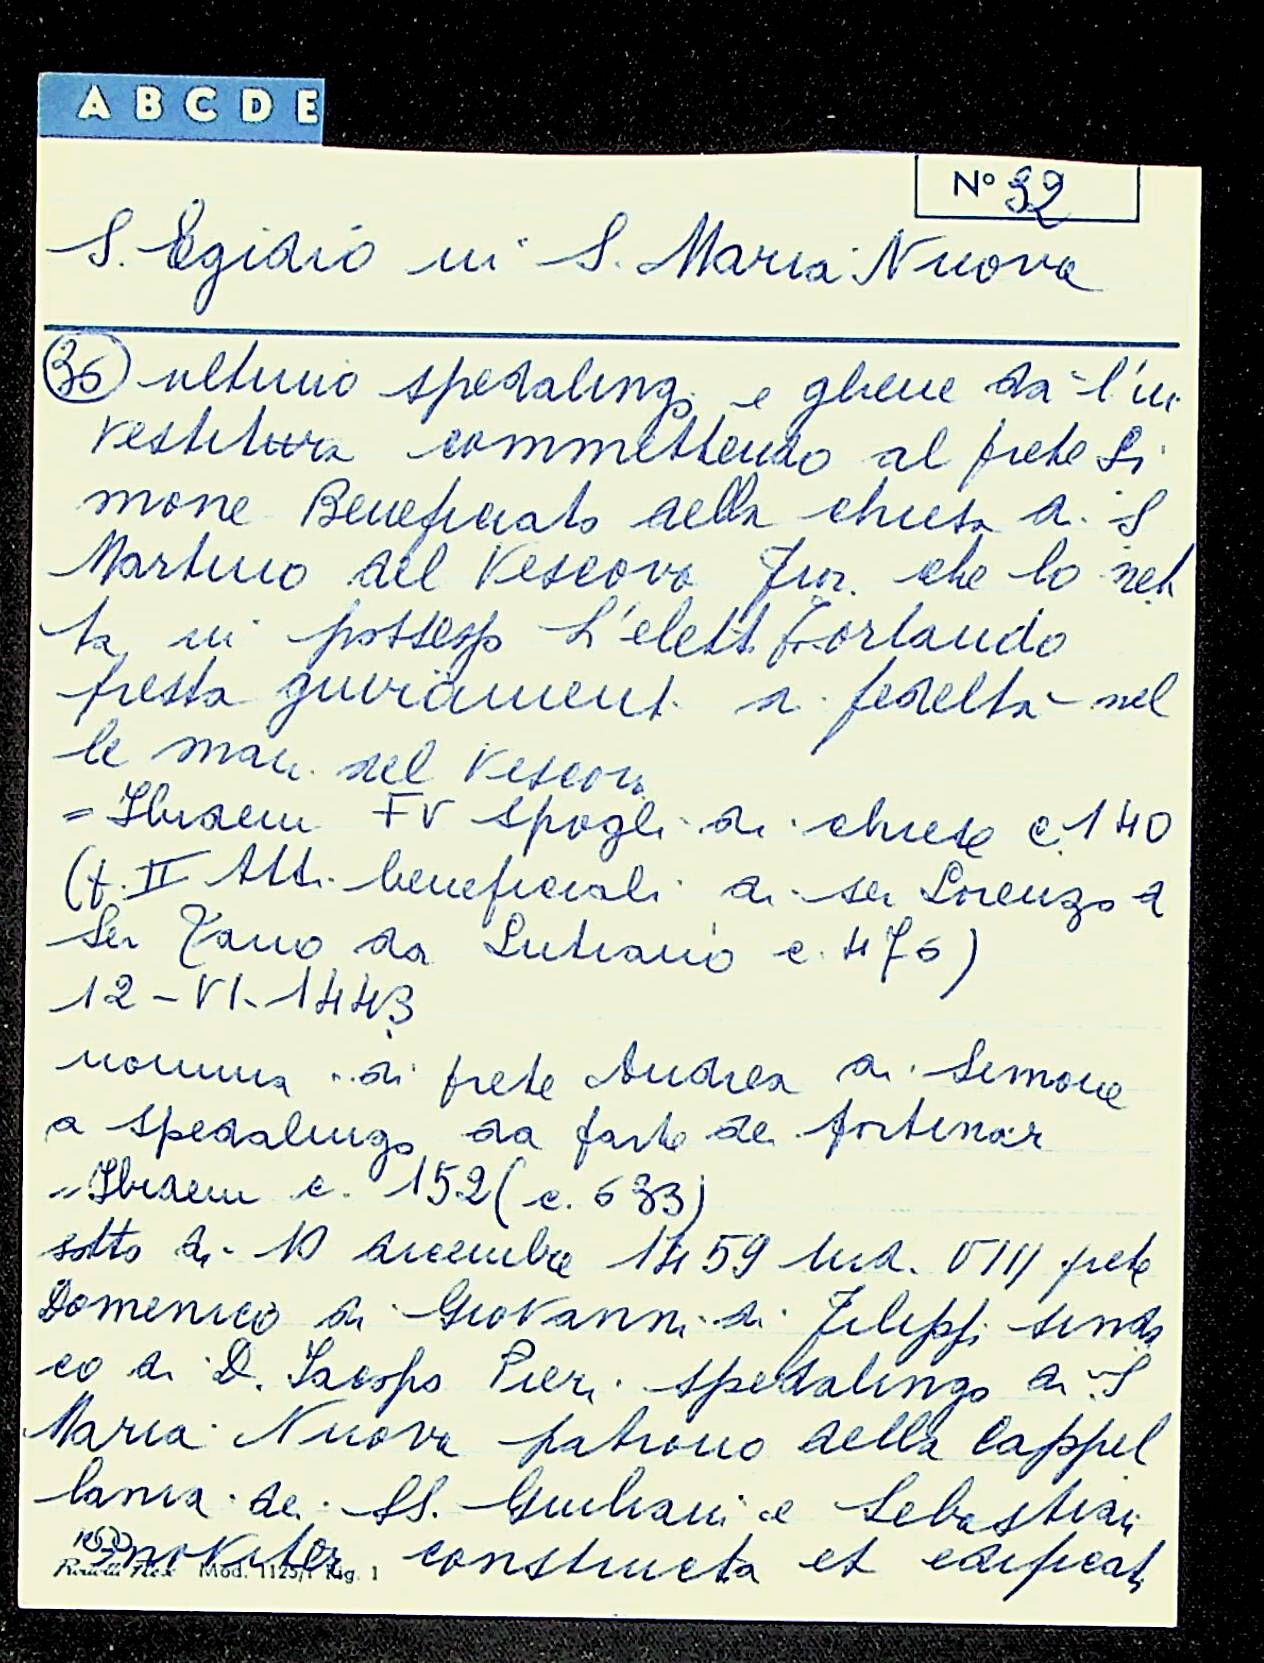 A B C D E
N° 92
S. Egidio in S. Maria Nuova
(36) ultimo spedaling. e gliene dà l'in
vestitura commettendo al prete Si
mone Beneficiato della chiesa d. S
Martino del Vescovo Fior. che lo met
ta in possesso L'elett. Forlando
presta giurament. d. fedeltà nel
le man. del Vescovo
= Ibidem FV spogli di chiese c. 140
(t. II Att. beneficiali di ser Lorenzo d
Ser Tano da Lutiano c. 476)
12-VI-1443
nomina di prete Andrea di Simone
a spedalingo da parte dei Portinar
= Ibidem c. 152 (c. 633)
sotto dì 10 dicembre 1459 Ind. VIII prete
Domenico di Giovanni di Filippi sinda
co di D. Iacopo Pieri spedalingo di S
Maria Nuova patrono della Cappel
lania dei SS. Giuliani e Sebastian
noviter constructa et edificat
Mod. 1125/1 Rig. 1